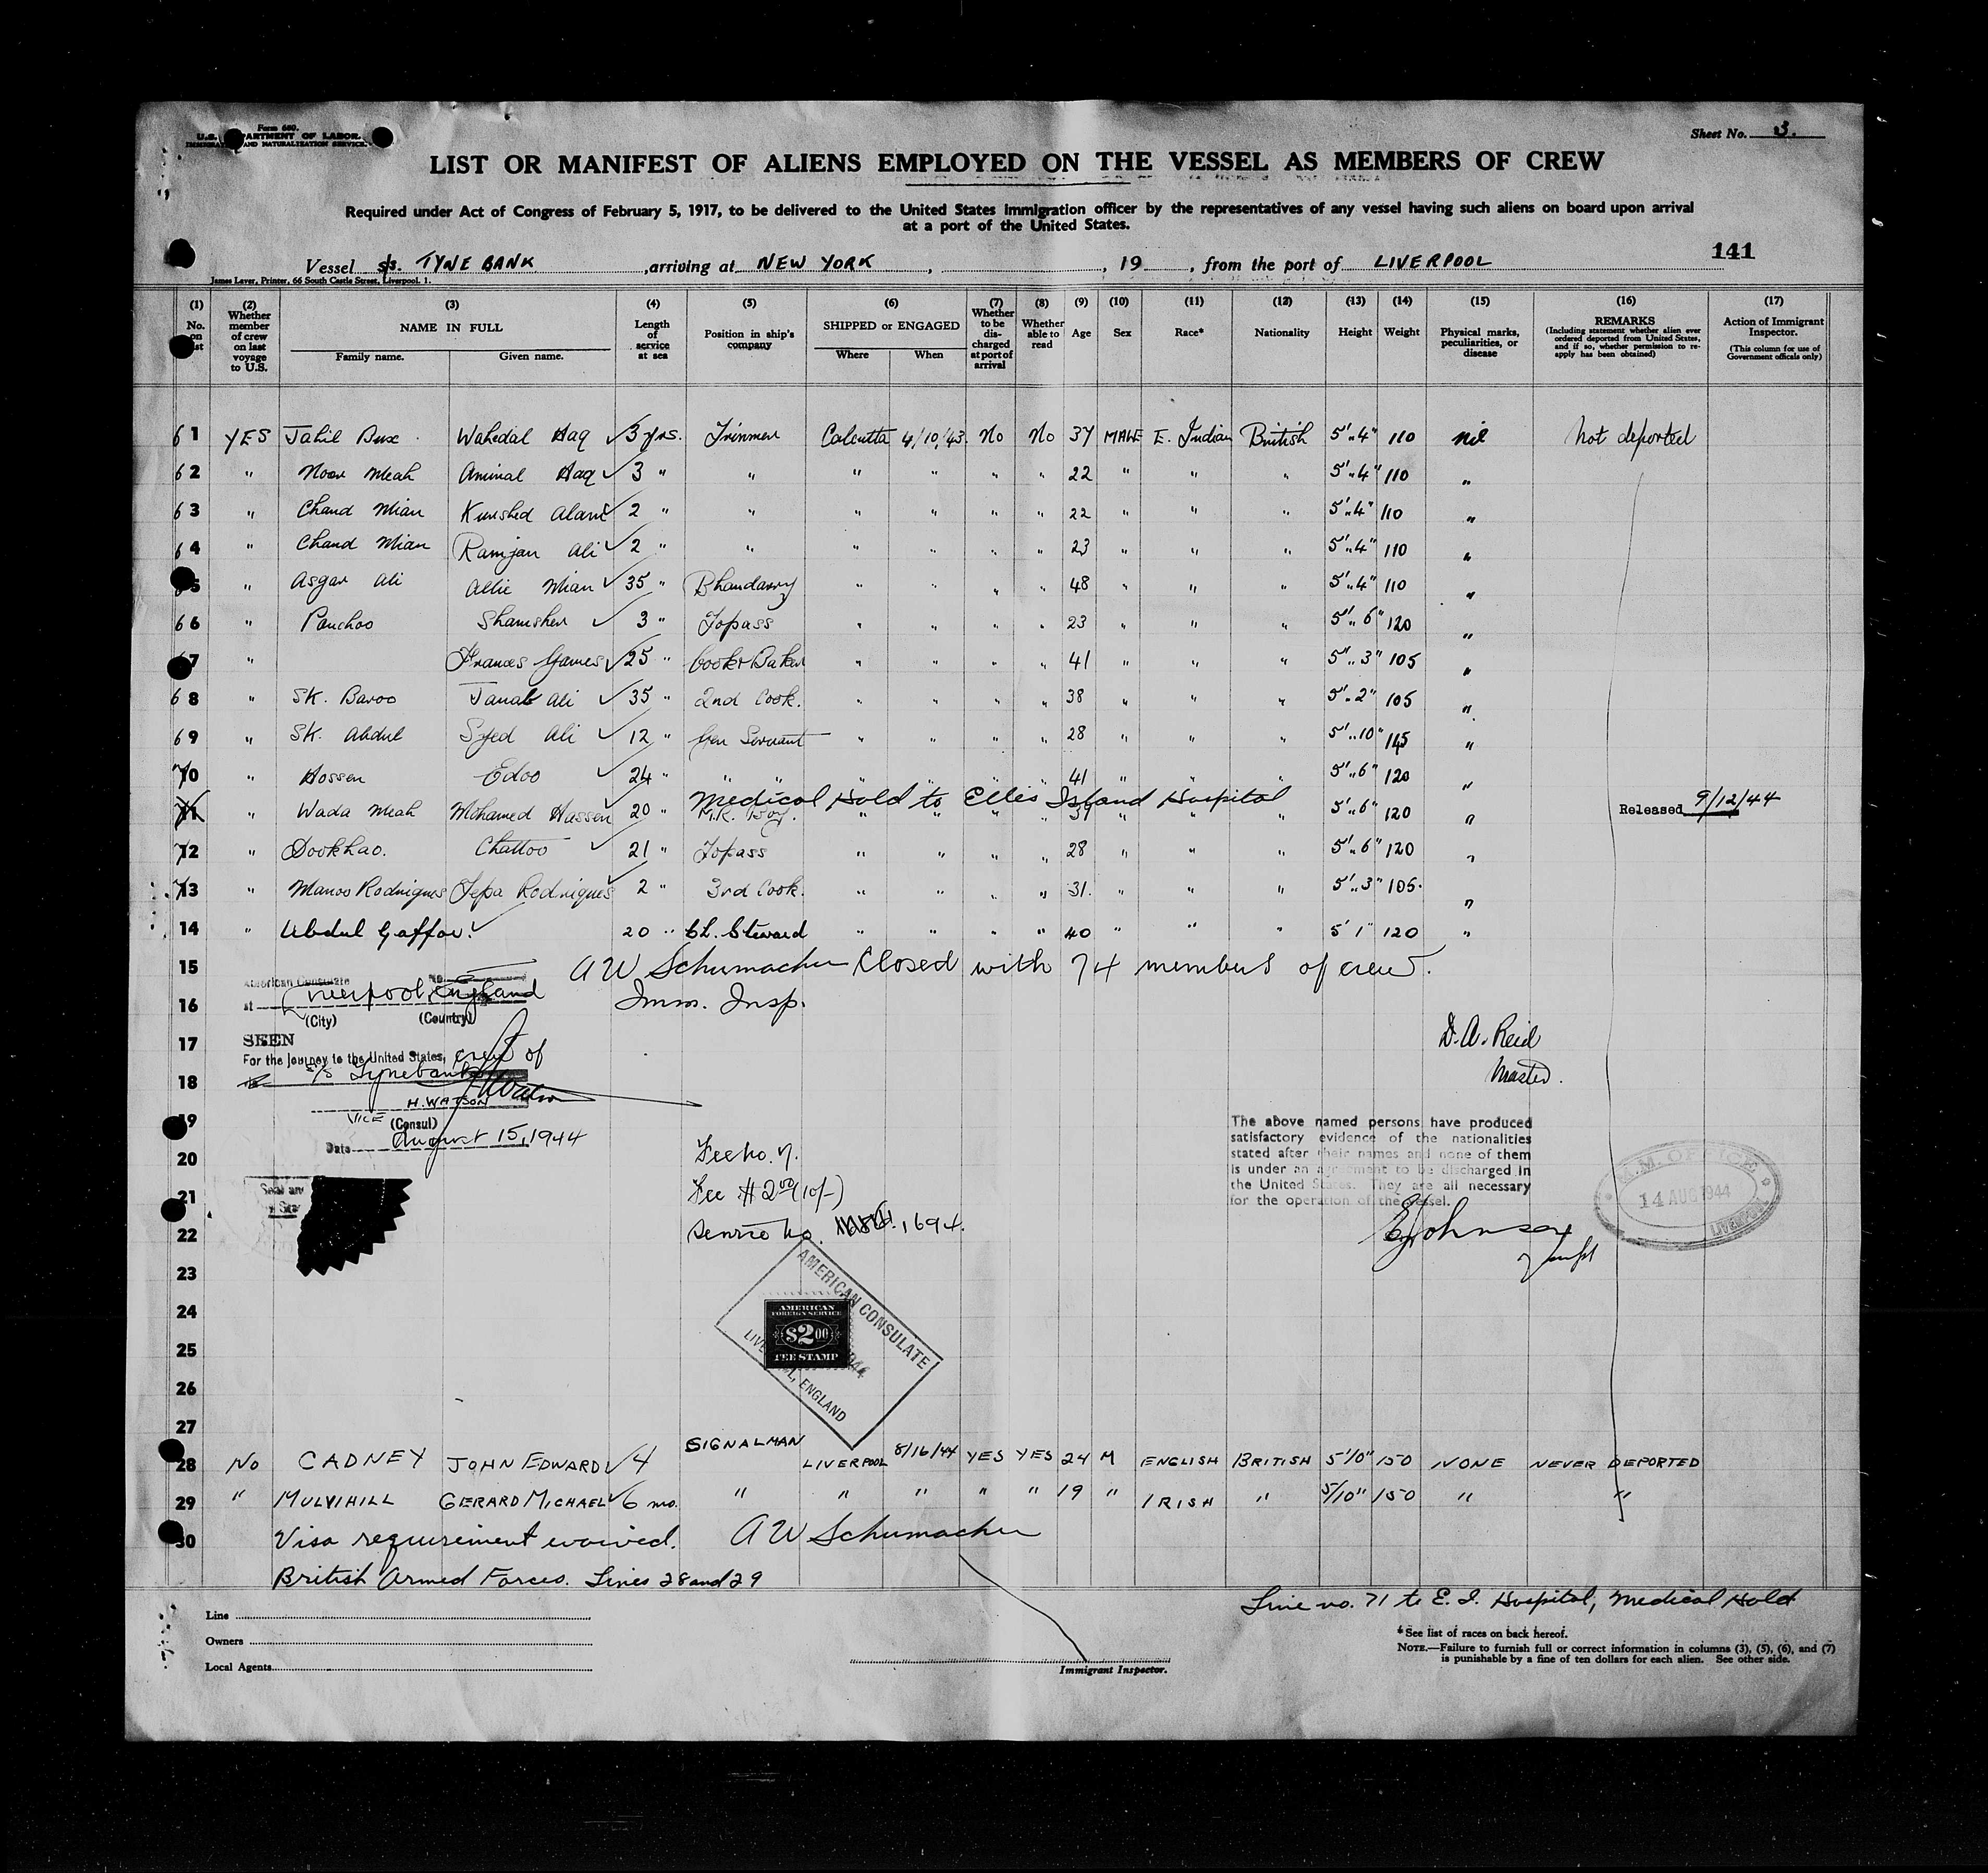 Form 680.
U.S. DEPARTMENT OF LABOR.
IMMIGRATION AND NATURALIZATION SERVICE.
Sheet No. 3.
LIST OR MANIFEST OF ALIENS EMPLOYED ON THE VESSEL AS MEMBERS OF CREW
Required under Act of Congress of February 5, 1917, to be delivered to the United States Immigration officer by the representatives of any vessel having such aliens on board upon arrival
at a port of the United States.
141
Vessel s/s. TYNE BANK, arriving at NEW YORK, , 19 , from the port of LIVERPOOL
James Laver, Printer, 66 South Castle Street, Liverpool. 1.
(1) No. on list (2) Whether member of crew on last voyage to U.S. (3) NAME IN FULL Family name. Given name. (4) Length of service at sea (5) Position in ship's company (6) SHIPPED or ENGAGED Where When (7) Whether to be discharged at port of arrival (8) Whether able to read (9) Age (10) Sex (11) Race* (12) Nationality (13) Height (14) Weight (15) Physical marks, peculiarities, or disease (16) REMARKS (Including statement whether alien ever ordered deported from United States, and if so, whether permission to re-apply has been obtained) (17) Action of Immigrant Inspector. (This column for use of Government officials only)
61 YES Jahil Bux Wahedal Haq 3 yrs. Trimmer Calcutta 4/10/43. No No 37 MALE E. Indian British 5'.4" 110 nil not deported
62 " Noor Meah Aminal Haq 3 " " " " " " 22 " " " 5'.4" 110 "
63 " Chand Mian Kurshed Alam 2 " " " " " " 22 " " " 5'.4" 110 "
64 " Chand Mian Ramjan Ali 2 " " " " " " 23 " " " 5'.4" 110 "
65 " Asgar Ali Allie Mian 35 " Bhandarry " " " " 48 " " " 5'.4" 110 "
66 " Panchoo Shamsher 3 " Topass " " " " 23 " " " 5'.6" 120 "
67 " Frances Gomes 25 " Cook & Baker " " " " 41 " " " 5'.3" 105 "
68 " SK. Baroo Janab Ali 35 " 2nd Cook. " " " " 38 " " " 5'.2" 105 "
69 " SK. Abdul Syed Ali 12 " Gen Servant " " " " 28 " " " 5'.10" 145 "
70 " Hossen Edoo 24 " " " " " " " 41 " " " 5'.6" 120 "
Medical Hold to Ellis Island Hospital
71 " Wada Meah Mohamed Hassen 20 " Boy. " " " " " " " 5'.6" 120 " Released 9/12/44
72 " Dookhao. Chattoo 21 " Topass " " " " 28 " " " 5'.6" 120 "
73 " Manoo Rodrigues Jepa Rodrigues 2 " 3rd Cook. " " " " 31. " " " 5'.3" 105. "
14 " Abdul Gaffar. 20 " Ch. Steward " " " " 40 " " " 5'1" 120 "
15 A W Schumacher Closed with 74 members of crew.
16 Imm. Insp.
American Consulate
at Liverpool, England
(City) (Country)
17 SEEN
For the journey to the United States, crew of
18 s/s Tynebank
H. WATSON
19 VICE (Consul)
Date August 15, 1944
D. A. Reid
Master.
The above named persons have produced
satisfactory evidence of the nationalities
stated after their names and none of them
is under an agreement to be discharged in
the United States. They are all necessary
for the operation of the vessel.
M.M. OFFICE
14 AUG 1944
LIVERPOOL
EJohnson
20 Fee No. 7.
21 Fee $2.00 (10/-)
22 Service No. 1694.
23
24
25
26
27
AMERICAN CONSULATE
LIVERPOOL, ENGLAND
AMERICAN
FOREIGN SERVICE
$2.00
FEE STAMP
28 No CADNEY JOHN EDWARD 4 SIGNALMAN LIVERPOOL 8/16/44 YES YES 24 M ENGLISH BRITISH 5'10" 150 NONE NEVER DEPORTED
29 " MULVIHILL GERARD MICHAEL 6 mo. " " " " " 19 " IRISH " 5/10" 150 " "
30 Visa requirement waived. A W Schumacher
British Armed Forces. Lines 28 and 29
Line
Owners
Local Agents
Immigrant Inspector.
Line no. 71 to E. I. Hospital, Medical Hold
* See list of races on back hereof.
NOTE.—Failure to furnish full or correct information in columns (3), (5), (6), and (7)
is punishable by a fine of ten dollars for each alien. See other side.